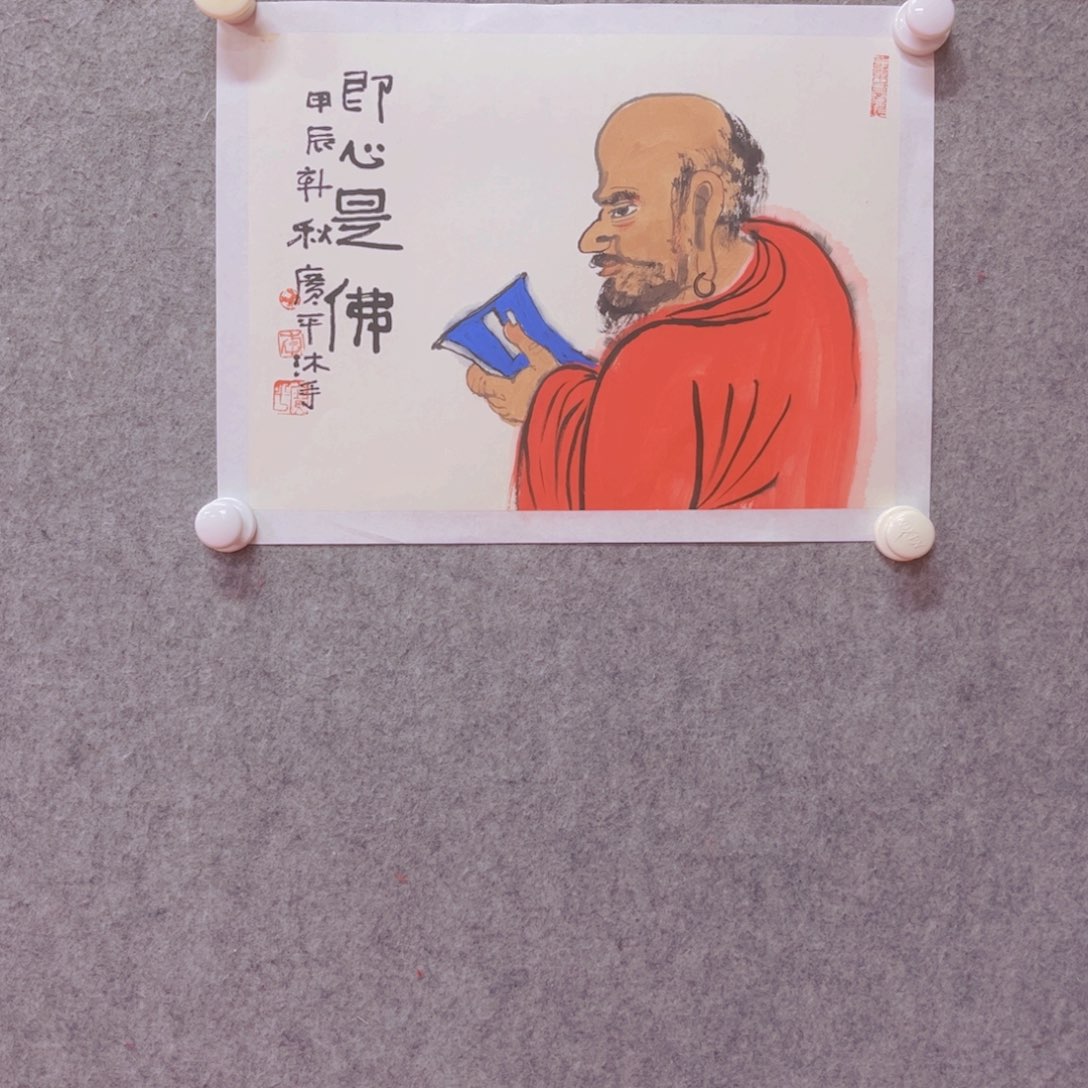 即心是佛
甲辰新秋廣平沐手